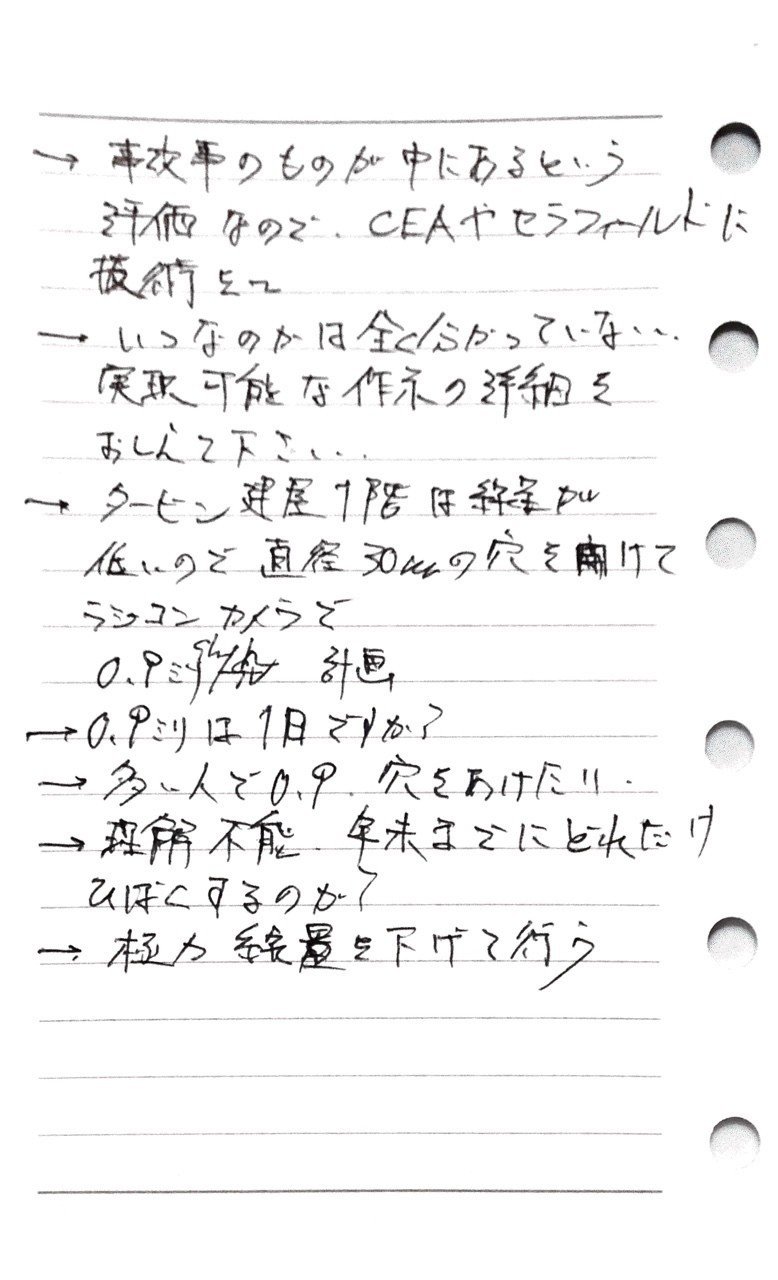 → 事故事のものが中にあるという
評価なので、CEAやセラフィールドに
技術を
→ いつなのかは全く分かっていない..
実現可能な作示の詳細を
おしえて下さい..
→ タービン建屋1階は線量が
低いので直径30cmの穴を開けて
ラジコンカメラで
0.9ミリ 計画
→ 0.9ミリは1日ですか?
→ 多い人で0.9. 穴をあけたり.
→ 理解不能. 年末までにどれだけ
ひばくするのか?
→ 極力線量を下げて行う